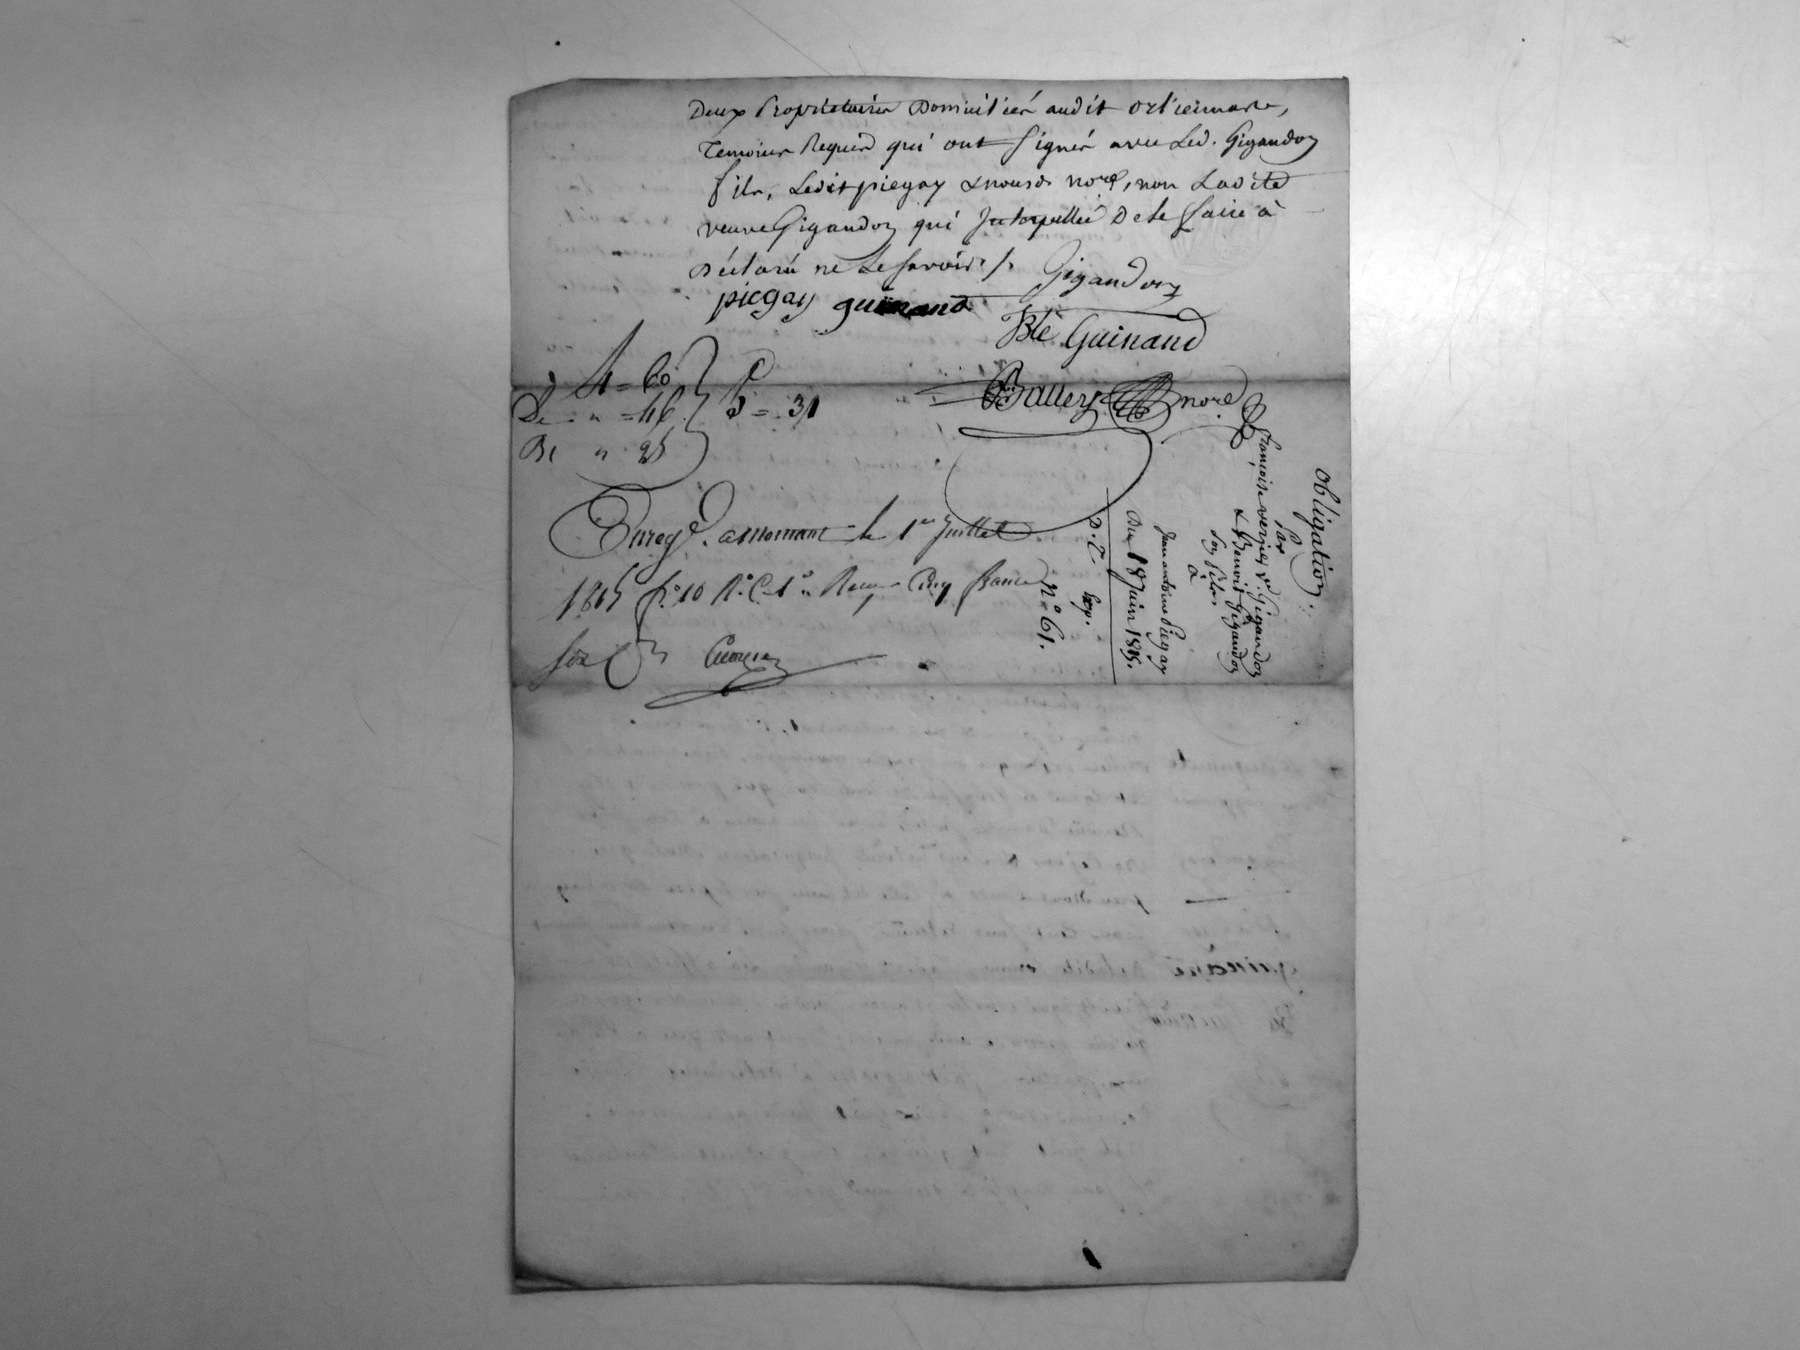 Deux Propriétaires Domiciliés audit ortiemare,
Temoins Requis qui ont signés avec Led. Gigandon
fils, Ledit piegay & nousd. nore, non Ladite
veuve Gigandon qui Interpellée De le faire à
Déclaré ne Le savoir ./.
Gigandon
piegay guinand
Bte Guinand
Balley nore
4 = 60
De " = 46
5 = 31
Be " 25
Enregé. le 1er Juillet
1815 fo. 10 Ro. C. 1o. Reçu Cinq francs
Obligation.
Par
françoise verjus ve. Gigandon
& Benoit Gigandon
Son fils.
à
Jean antoine Piegay
Du 18 Juin 1815.
D. E. Exp.
no. 61.